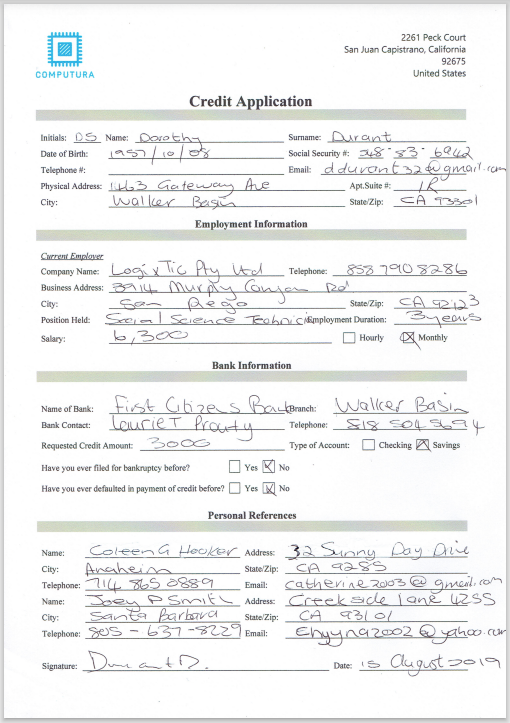 2261 Peck Court
San Juan Capistrano, California
92675
United States
COMPUTURA
Credit Application
Initials: DS Name: Dorothy Surname: Durant
Date of Birth: 1957/10/08 Social Security #: 568-83-6942
Telephone #: Email: ddurant32@gmail.com
Physical Address: 1463 Gateway Ave Apt.Suite #: 1R
City: Walker Basin State/Zip: CA 93301
Employment Information
Current Employer
Company Name: LogixTic Pty Ltd Telephone: 858 790 8286
Business Address: 3914 Murphy Canyon Rd
City: San Diego State/Zip: CA 92123
Position Held: Social Science Technici Employment Duration: 3 years
Salary: 6,300 Hourly Monthly
Bank Information
Name of Bank: First Citizens Bank Branch: Walker Basin
Bank Contact: Laurie T Prouty Telephone: 818 504 5694
Requested Credit Amount: 3000 Type of Account: Checking Savings
Have you ever filed for bankruptcy before? Yes No
Have you ever defaulted in payment of credit before? Yes No
Personal References
Name: Coleen G Hooker Address: 32 Sunny Day Drive
City: Anaheim State/Zip: CA 9285
Telephone: 714 865 0889 Email: catherine2003@gmail.com
Name: Joey P Smith Address: Creekside lane 4255
City: Santa Barbara State/Zip: CA 93101
Telephone: 805-637-8229 Email: Ehyyna2002@yahoo.com
Signature: Durant D. Date: 15 August 2019